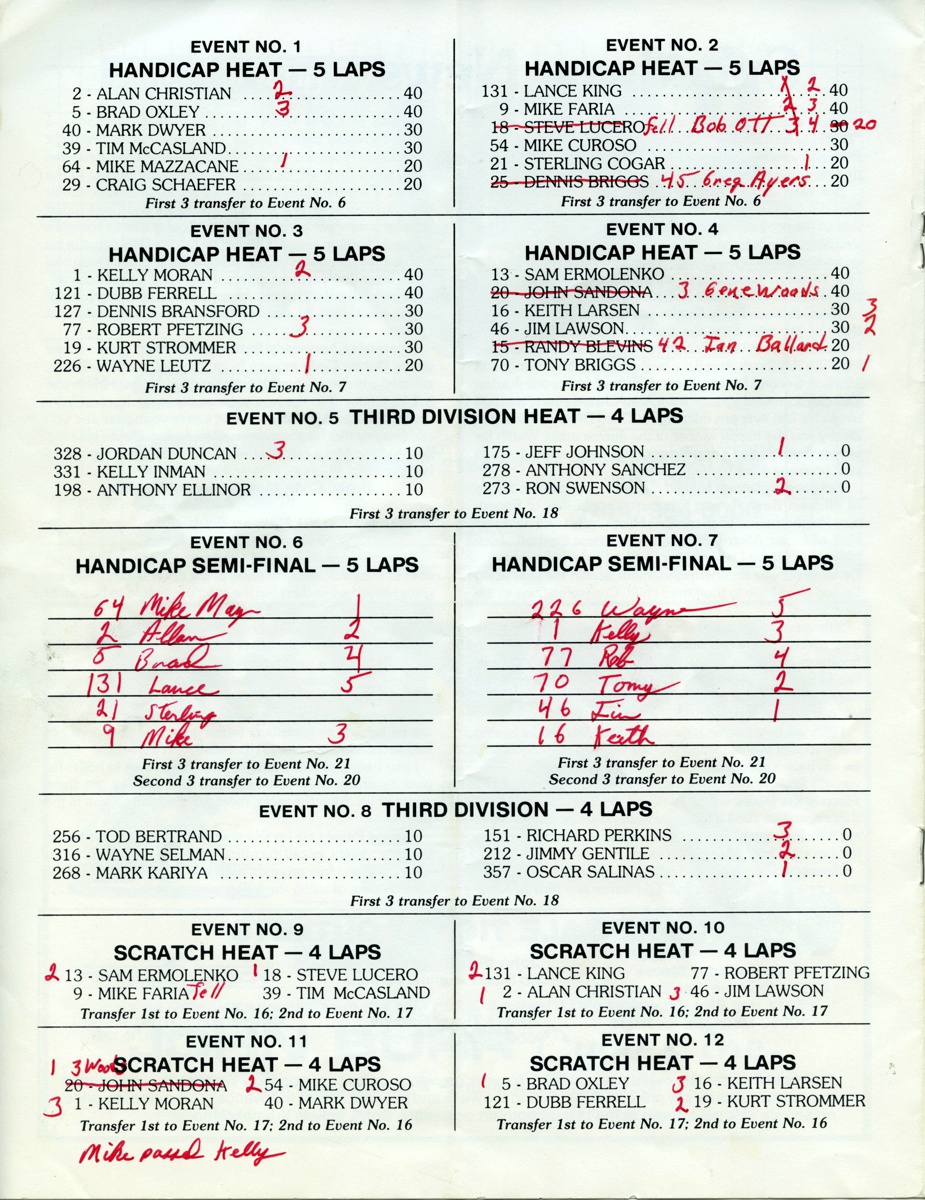 EVENT NO. 1
HANDICAP HEAT — 5 LAPS
2 - ALAN CHRISTIAN ....2............ 40
5 - BRAD OXLEY ........3............ 40
40 - MARK DWYER .................... 30
39 - TIM McCASLAND.................. 30
64 - MIKE MAZZACANE ....1........... 20
29 - CRAIG SCHAEFER ................ 20
First 3 transfer to Event No. 6
EVENT NO. 2
HANDICAP HEAT — 5 LAPS
131 - LANCE KING ............ 1 2 40
9 - MIKE FARIA ............ 2 3 40
18 - STEVE LUCERO fell Bob Ott 3 4 30 20
54 - MIKE CUROSO .................... 30
21 - STERLING COGAR ............ 1 .. 20
25 - DENNIS BRIGGS .. 45 Greg Ayers ... 20
First 3 transfer to Event No. 6
EVENT NO. 3
HANDICAP HEAT — 5 LAPS
1 - KELLY MORAN ........2............ 40
121 - DUBB FERRELL .................. 40
127 - DENNIS BRANSFORD .............. 30
77 - ROBERT PFETZING .....3.......... 30
19 - KURT STROMMER .................. 30
226 - WAYNE LEUTZ .......1........... 20
First 3 transfer to Event No. 7
EVENT NO. 4
HANDICAP HEAT — 5 LAPS
13 - SAM ERMOLENKO .................. 40
20 - JOHN SANDONA 3 Gene Woods . 40
16 - KEITH LARSEN .................. 30 3
46 - JIM LAWSON..................... 30 2
15 - RANDY BLEVINS 42 Ian Ballard. 20
70 - TONY BRIGGS .................... 20 1
First 3 transfer to Event No. 7
EVENT NO. 5 THIRD DIVISION HEAT — 4 LAPS
328 - JORDAN DUNCAN ...3............ 10
331 - KELLY INMAN .................. 10
198 - ANTHONY ELLINOR .............. 10
175 - JEFF JOHNSON ............1...... 0
278 - ANTHONY SANCHEZ ............... 0
273 - RON SWENSON .............2...... 0
First 3 transfer to Event No. 18
EVENT NO. 6
HANDICAP SEMI-FINAL — 5 LAPS
64 Mike Maz 1
2 Allan 2
5 Brad 4
131 Lance 5
21 Sterling
9 Mike 3
First 3 transfer to Event No. 21
Second 3 transfer to Event No. 20
EVENT NO. 7
HANDICAP SEMI-FINAL — 5 LAPS
226 Wayne 5
1 Kelly 3
77 Rob 4
70 Tony 2
46 Jim 1
16 Keith
First 3 transfer to Event No. 21
Second 3 transfer to Event No. 20
EVENT NO. 8 THIRD DIVISION — 4 LAPS
256 - TOD BERTRAND .................. 10
316 - WAYNE SELMAN................... 10
268 - MARK KARIYA ................... 10
151 - RICHARD PERKINS ..........3..... 0
212 - JIMMY GENTILE ............2..... 0
357 - OSCAR SALINAS ............1..... 0
First 3 transfer to Event No. 18
EVENT NO. 9
SCRATCH HEAT — 4 LAPS
2 13 - SAM ERMOLENKO 1 18 - STEVE LUCERO
9 - MIKE FARIA fell 39 - TIM McCASLAND
Transfer 1st to Event No. 16; 2nd to Event No. 17
EVENT NO. 10
SCRATCH HEAT — 4 LAPS
2 131 - LANCE KING 77 - ROBERT PFETZING
1 2 - ALAN CHRISTIAN 3 46 - JIM LAWSON
Transfer 1st to Event No. 16; 2nd to Event No. 17
EVENT NO. 11
1 3 Woods SCRATCH HEAT — 4 LAPS
20 - JOHN SANDONA 2 54 - MIKE CUROSO
3 1 - KELLY MORAN 40 - MARK DWYER
Transfer 1st to Event No. 17; 2nd to Event No. 16
Mike passed Kelly
EVENT NO. 12
SCRATCH HEAT — 4 LAPS
1 5 - BRAD OXLEY 3 16 - KEITH LARSEN
121 - DUBB FERRELL 2 19 - KURT STROMMER
Transfer 1st to Event No. 17; 2nd to Event No. 16